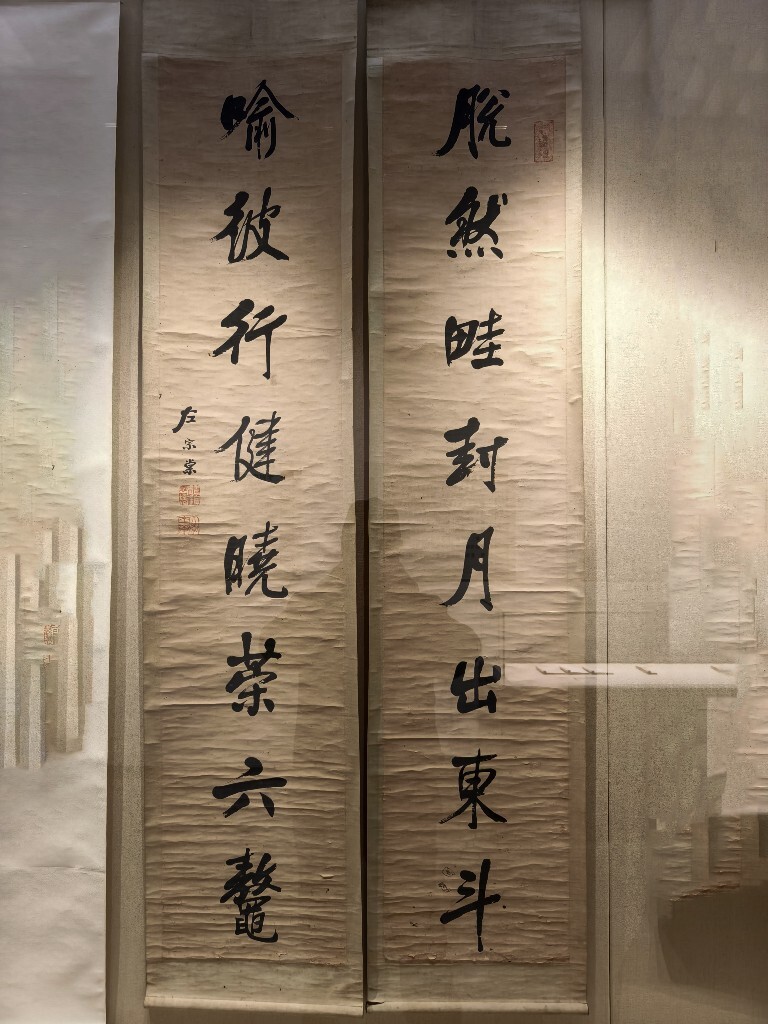 脱然畦封月出東斗
喻彼行健曉榮六鼇
左宗棠